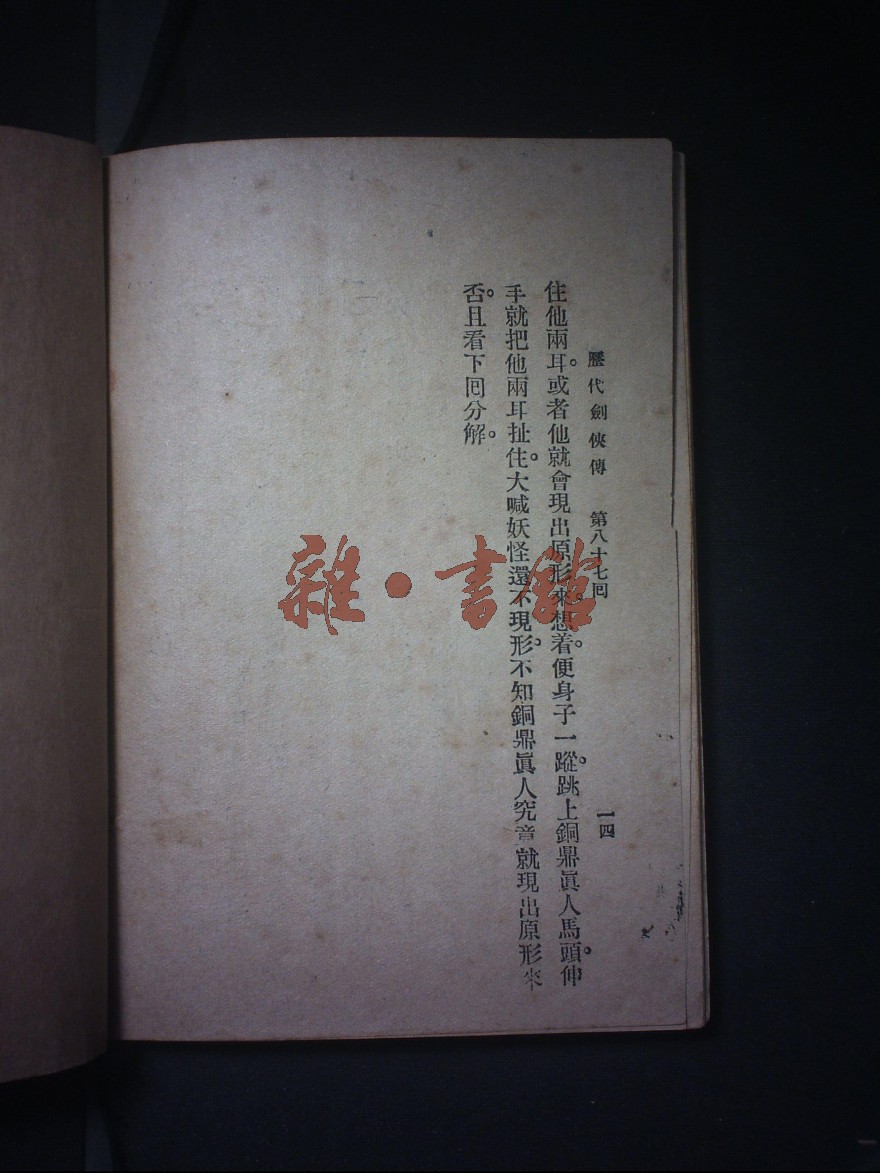 歷代劍俠傳 第八十七回 一四
住他兩耳。或者他就會現出原形來。想着。便身子一蹤。跳上銅鼎眞人馬頭。伸
手就把他兩耳扯住。大喊妖怪還不現形。不知銅鼎眞人究竟就現出原形來
否。且看下回分解。
雜·書館